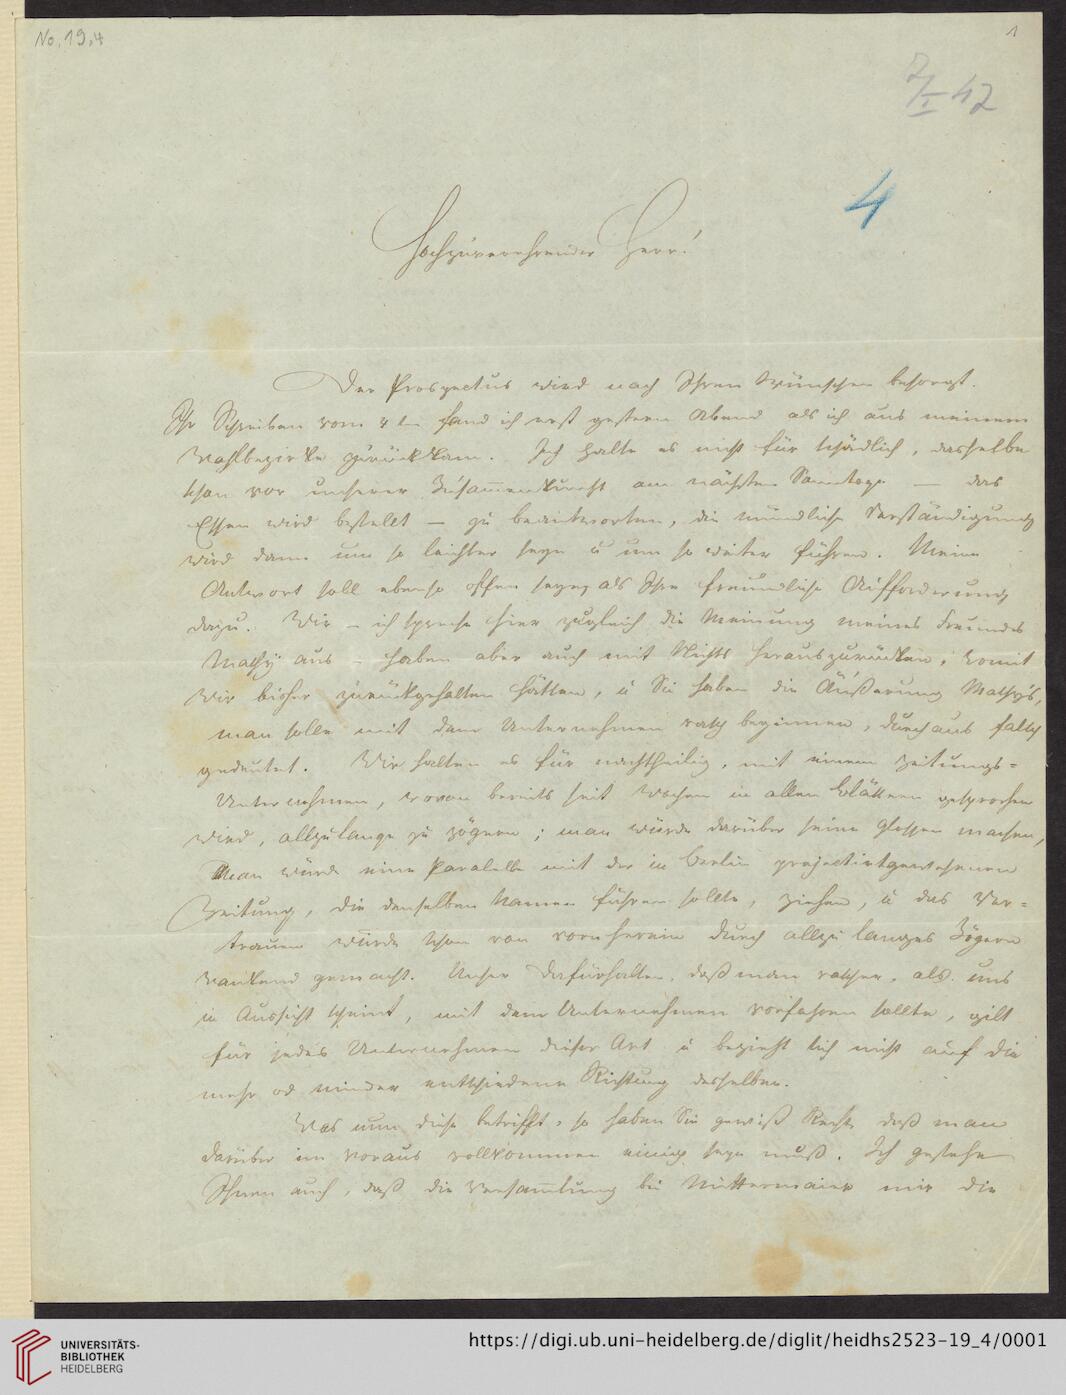 No. 19,4
1
7/I 47
4
Hochzuverehrender Herr!
Der Prospectus wird nach Ihren Wünschen besorgt.
Ihr Schreiben vom 4 fand ich erst gestern Abend als ich aus meinem
Wahlbezirke zurückkam. Ich halte es nicht für schädlich, dasselbe
schon vor unserer Zusammenkunft am nächsten Samstage – das
Essen wird bestellt – zu beantworten, die mündliche Verständigung
wird dann um so leichter seyn u um so weiter führen. Meine
Antwort soll ebenso offen seyn als Ihre freundliche Aufforderung
dazu. Wir – ich spreche hier zugleich die Meinung meines Freundes
Mathy aus – haben aber auch mit Nichts herauszurücken, womit
wir bisher zurückgehalten hätten, u Sie haben die Äußerung Mathy's,
man solle mit dem Unternehmen rasch beginnen, durchaus falsch
gedeutet. Wir halten es für nachtheilig, mit einem Zeitungs=
Unternehmen, wovon bereits seit Wochen in allen Blättern gesprochen
wird, allzulange zu zögern; man würde darüber seine Glossen machen,
Man würde eine Paralelle mit der in Berlin projectirtgewesenen
Zeitung, die denselben Namen führen sollte, ziehen, u das Ver=
trauen würde schon von vornherein durch allzu langes Zögern
wankend gemacht. Unser Dafürhalten, daß man rascher, als uns
in Aussicht scheint, mit dem Unternehmen vorfahren sollte, gilt
für jedes Unternehmen dieser Art u bezieht sich nicht auf die
mehr od minder entschiedene Richtung desselben.
Was nun diese betrifft, so haben Sie gewiß Recht, daß man
darüber im Voraus vollkommen einig seyn muß. Ich gestehe
Ihnen auch, daß die Versammlung bei Mittermaier mir die
UNIVERSITÄTS-
BIBLIOTHEK
HEIDELBERG
https://digi.ub.uni-heidelberg.de/diglit/heidhs2523-19_4/0001